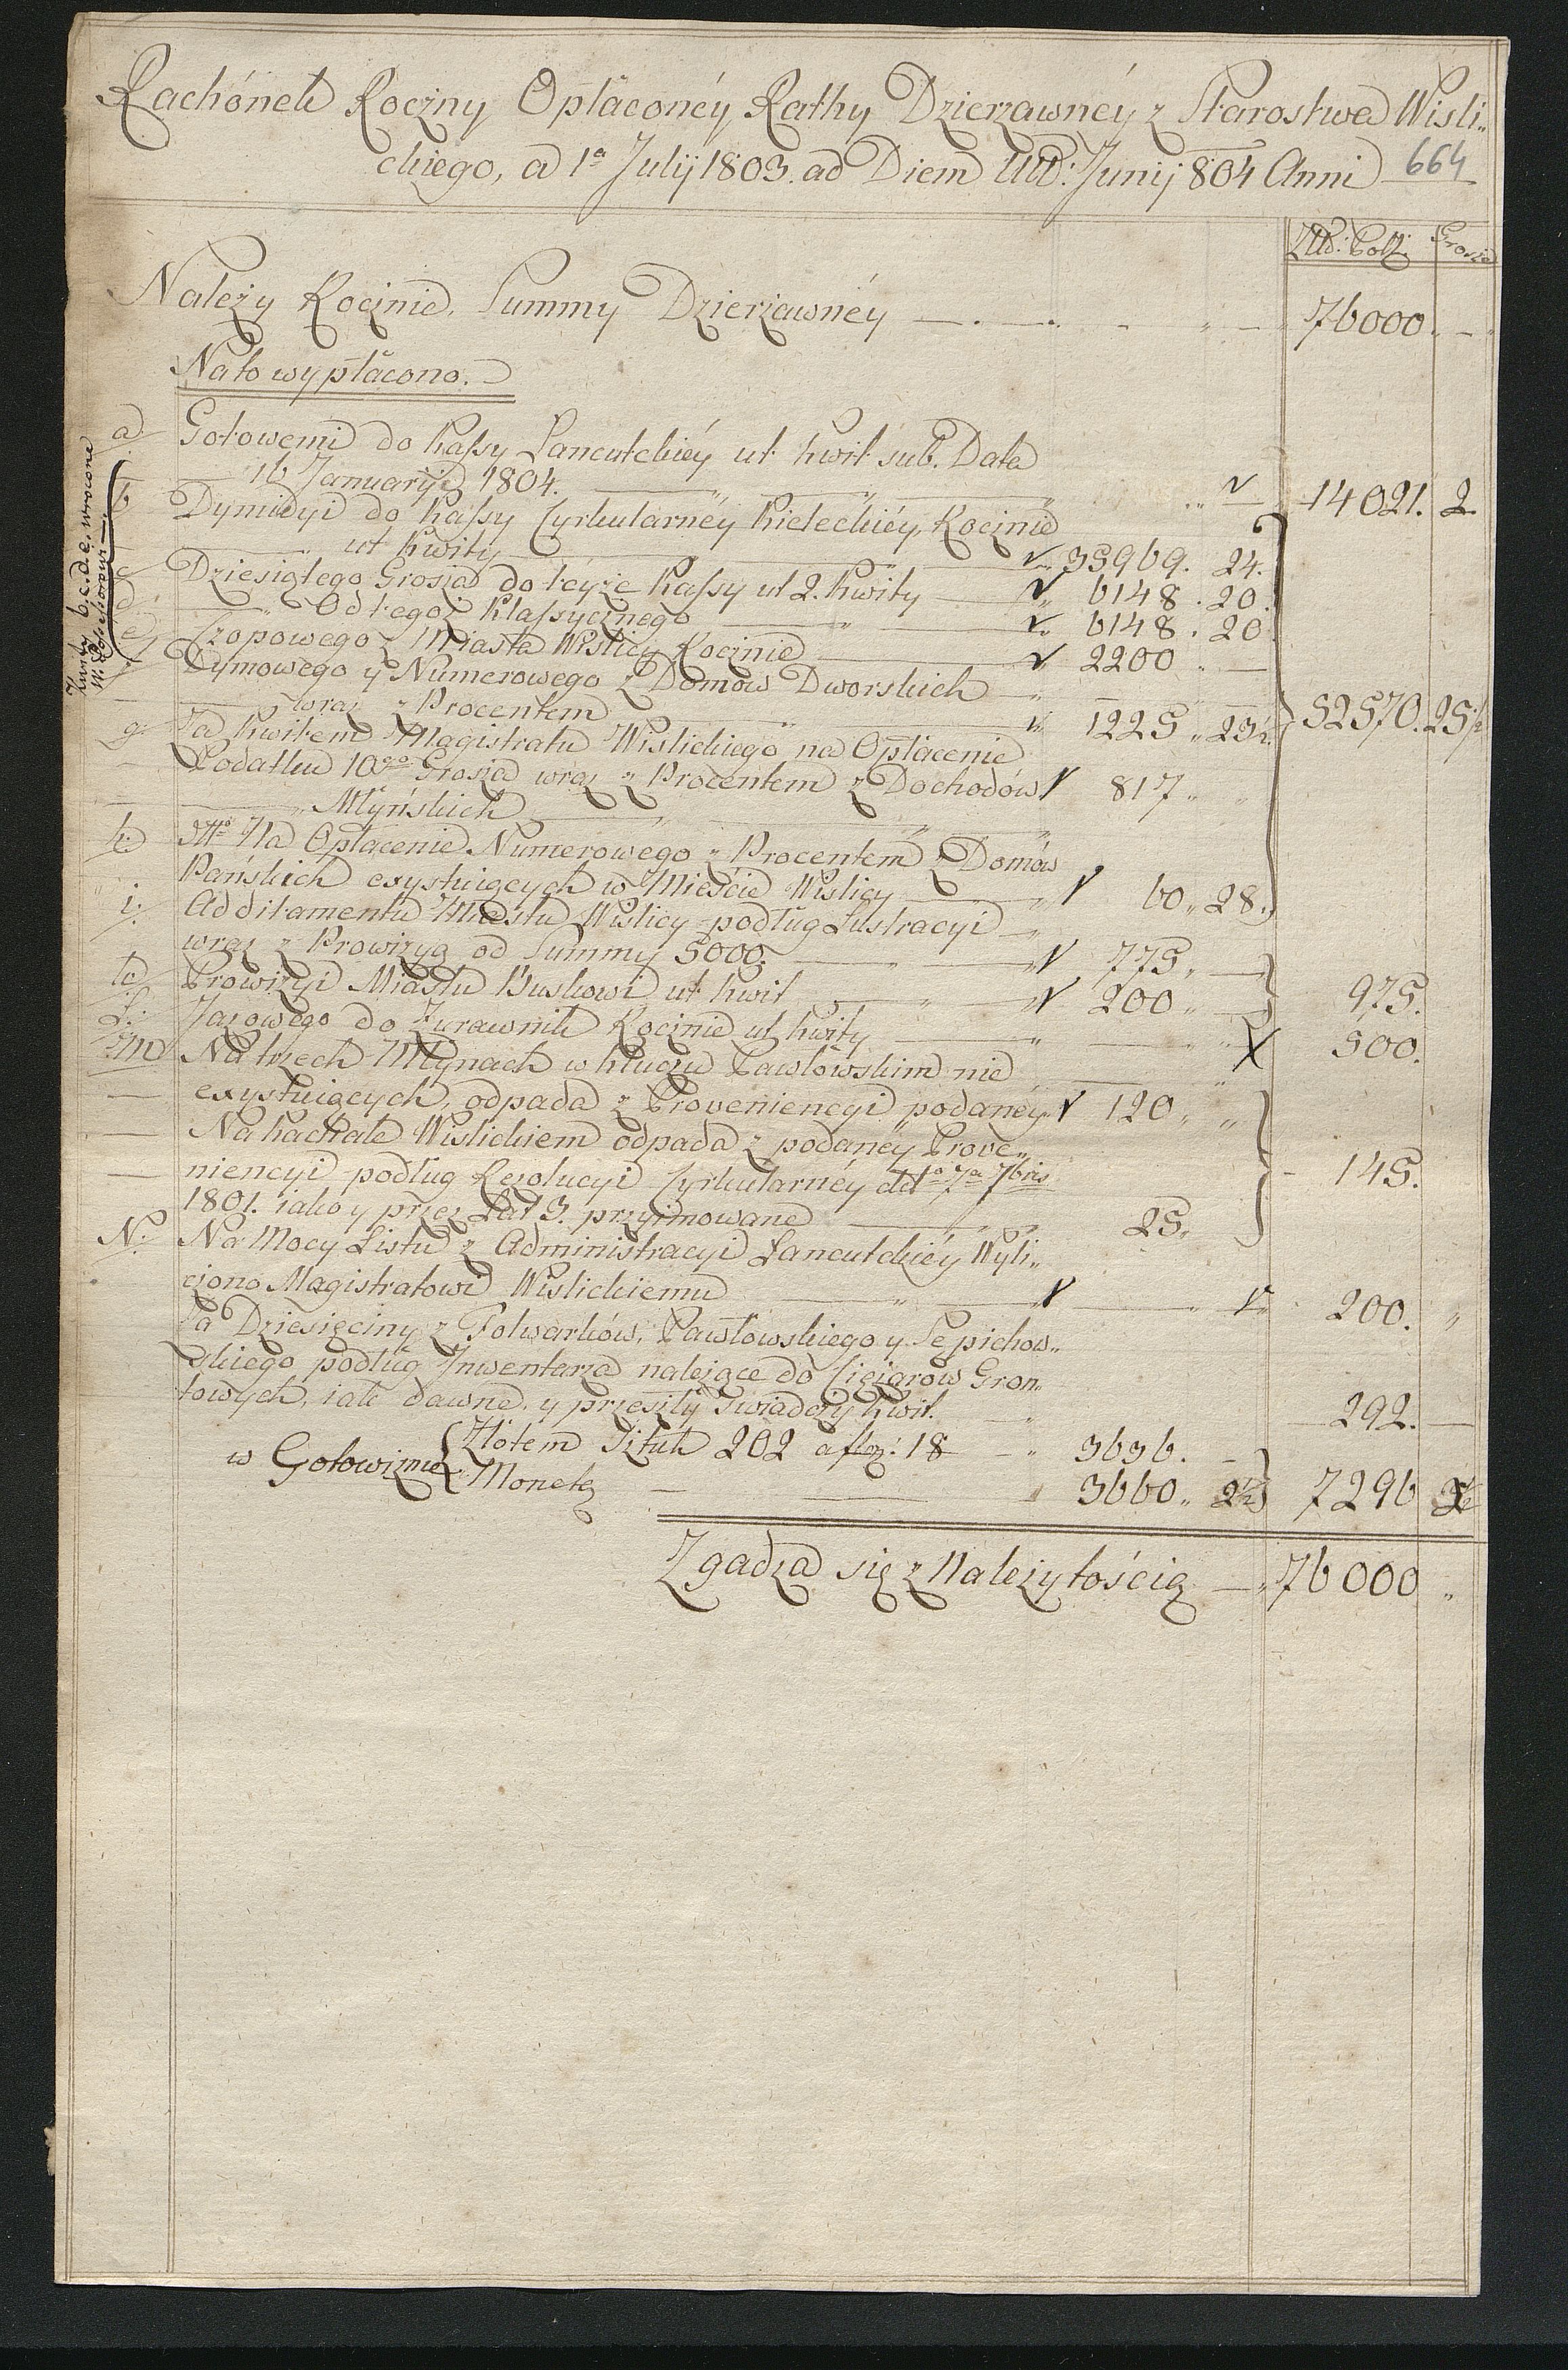 Rachónek Roczny Opłaconéy Rathy Dzierzawnéy z Starostwa Wisli„
ckiego, a 1a Julij 1803. ad Diem Ult: Junij 804 Anni 664
Złt: Pol: Grosze
Należy Rocznie, Summy Dzierzawnéy 76000. —
Na to wypłacono.
a. Gotowemi do Kassy Łancutckiéy ut Kwit sub. Data
16 Januarij 1804. 14021. 2
b Dymidyi do Kassy Cyrkularnéy Kieleckiéy, Rocznie
ut Kwity 35969. 24.
c Dziesiątego Grosza do téyże Kassy ut 2. Kwity 6148. 20.
d Od tegoż Klassycznego 6148. 20
e Czopowego z Miasta Wislicy Rocznie 2200 —
f Dymowego y Numerowego z Domów Dworskich
wraz z Procentem 1225 „ 23½. 52570. 25½
g. Za Kwitem Magistratu Wislickiego na Opłacenie
Podatku 10go Grosza wraz z Procentem z Dochodów 817 „ „
Młyńskich
h. Dtto Na Opłacenie Numerowego z Procentem z Domów
Pańskich exystuiących w Mieście Wislicy 60 „ 28 „
i. Additamentu Miastu Wislicy podług Lustracyi
wraz z Prowizyą od Summy 5000. 775 „ —
k Prowizyi Miastu Buskowi ut Kwit 200 „ — 975.
l. Jazowego do Zurawnik Rocznie ut Kwity 500.
m Na trzech Młynach w Kluczu Pawłowskim nie
exystuiących, odpada z Proveniencyi podaney. 120 „ „
Na hachale Wislickiem odpada z podanéy Prove„
niencyi podług Rezolucyi Cyrkularnéy ddto 7a 7bris 145.
1801. iako y przez Lat 3. przyimowane 25 „
N. Na Mocy Listu z Administracyi Łancutckiéy Wyli„
czono Magistratowi Wislickiemu 200. „
Za Dziesięciny z Folwarków, Pawłowskiego y Sępichow„
skiego podług Inwentarza należące do Ciężarow Gron„
towych, iak dawne, y przeszły świadczy Kwit. 292. —
w Gotowiznie { Złotem Sztuk 202 a flor: 18 3636. —
Monetą 3660 „ 2½ 7296 2½
Zgadza się z Należytością 76000 „
Kwity b. c. d. e. wrocone
W. Possessorowi